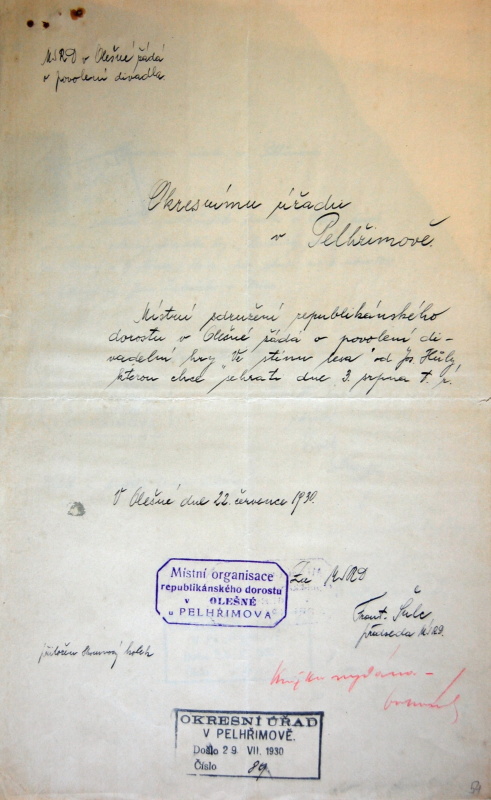 MSRD v Olešné žádá
o povolení divadla
Okresnímu úřadu
v Pelhřimově.
Místní sdružení republikánského
dorostu v Olešné žádá o povolení di-
vadelní hry Ve stínu lesa" od Jos. Hully,
kterou chce sehrati dne 3. srpna t. r.
V Olešné dne 22. července 1930.
Za MSRD
Místní organisace
republikánského dorostu
v OLEŠNÉ
u PELHŘIMOVA
Frant. Šulc
předseda MSRD.
přiložen kolek
vydána -
OKRESNÍ ÚŘAD
V PELHŘIMOVĚ.
Došlo 29 VII. 1930
Číslo 89
59